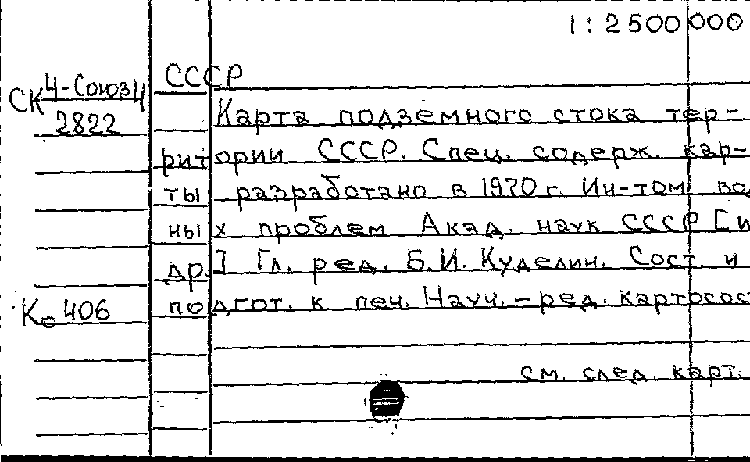 1:2500000
СССР
СК 4-Союз/4
2822
Карта подземного стока тер-
ритории СССР. Спец. содерж. кар-
ты разработано в 1970 г. Ин-том во
ных проблем Акад. наук СССР [и
др.] Гл. ред. Б.И. Куделин. Сост. и
подгот. к печ. Науч.-ред. картосос
Ко 406
см. след. карт.